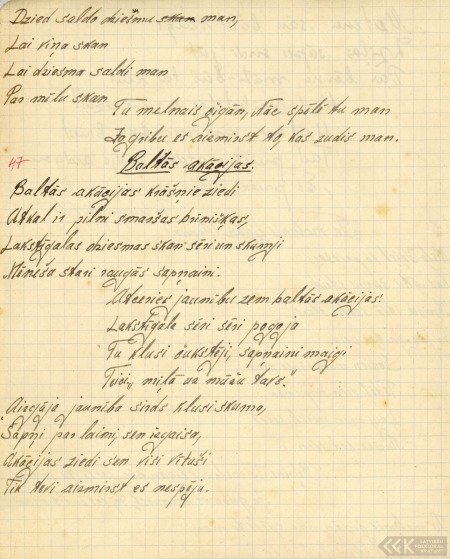 Dzied saldo dziesmu skan man,
Lai viņa skan
Lai dziesma saldi man
Par mīlu skan
Tu melnais čigān, Nāc spēlē tu man
Jo gribu es aizmirst to, kas zudis man.
47
Baltās akācijas.
Baltās akācijas krāšņie ziedi
Atkal ir pilni smaršas brīnišķas,
Lakstīgalas dziesmas skan sēri un skumji
Mēneša stari raugās sapņaini.
Atceries jaunību zem baltās akācijas.
Lakstīgala sēri sēri pogoja
Tu klusi čukstēji, sapņaini maigi
Tici, mīļā uz mūžu tavs."
Aizgāja jaunība sirds klusi skuma,
Sapņi par laimi, sen izgaisa,
Akācijas ziedi sen visi vītuši
Tik tevi aizmirst es nespēju.
LATVIEŠU
FOLKLORAS
KRĀTUVE